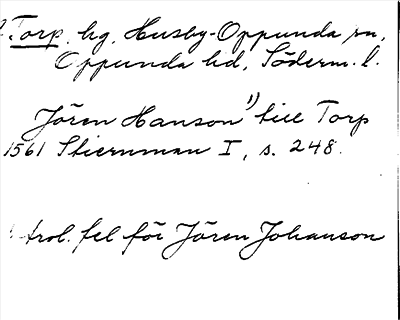 Torp. hg. Husby-Oppunda sn,
Oppunda hd, Söderm. l.
Jören Hanson¹⁾ till Torp
1561 Stiernman I, s. 248.
trol. fel för Jören Johanson